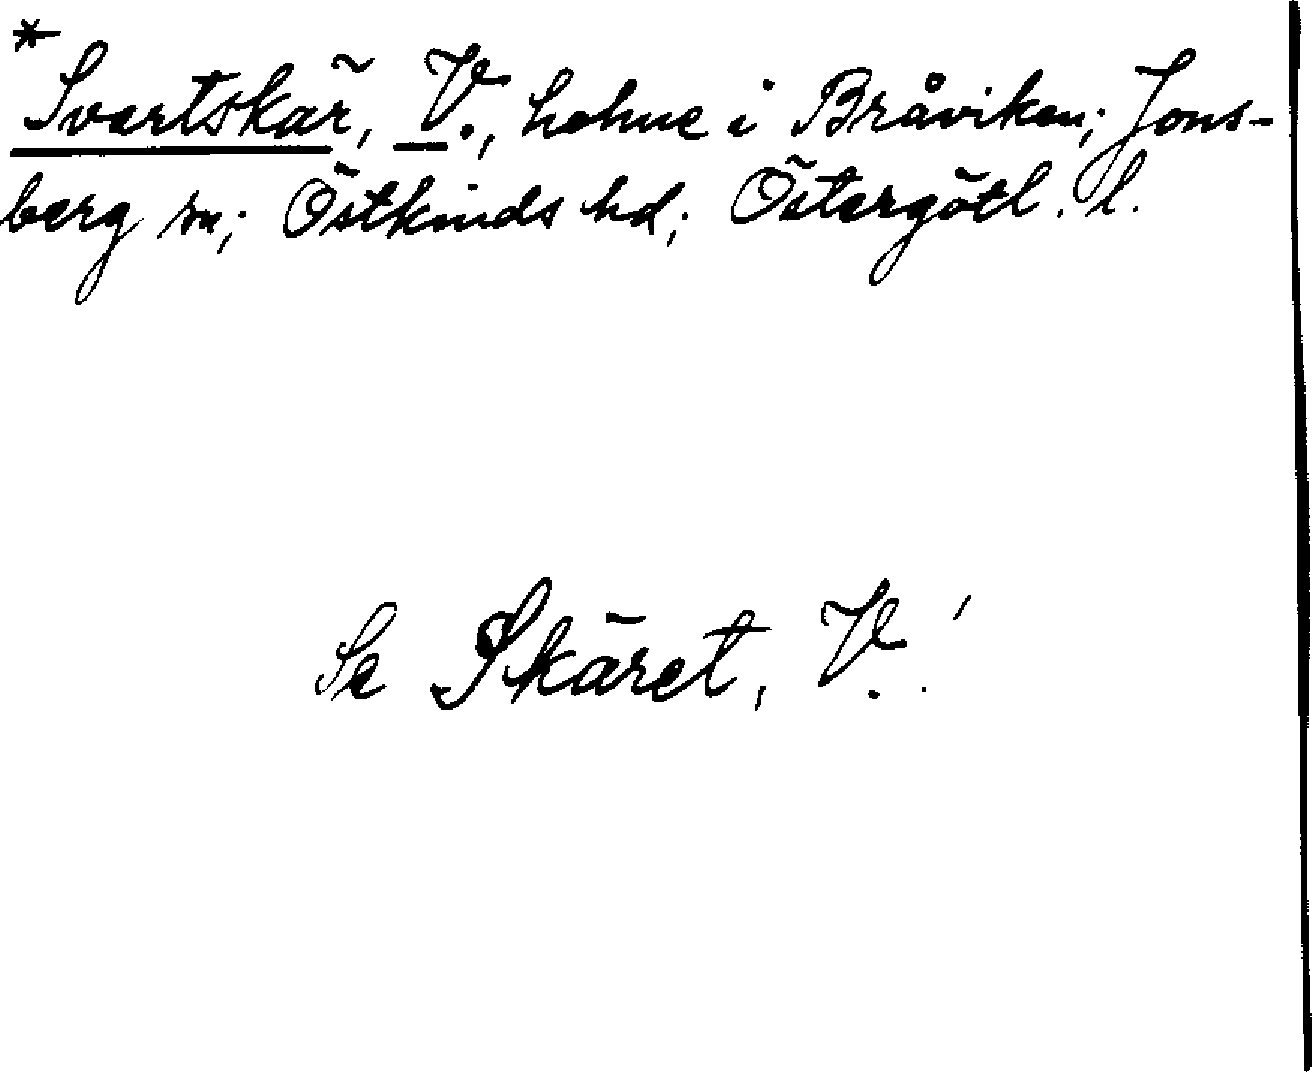 *
Svartskär, V., holme i Bråviken; Jons-
berg sn; Östkinds hd; Östergötl. l.
Se Skäret, V.!